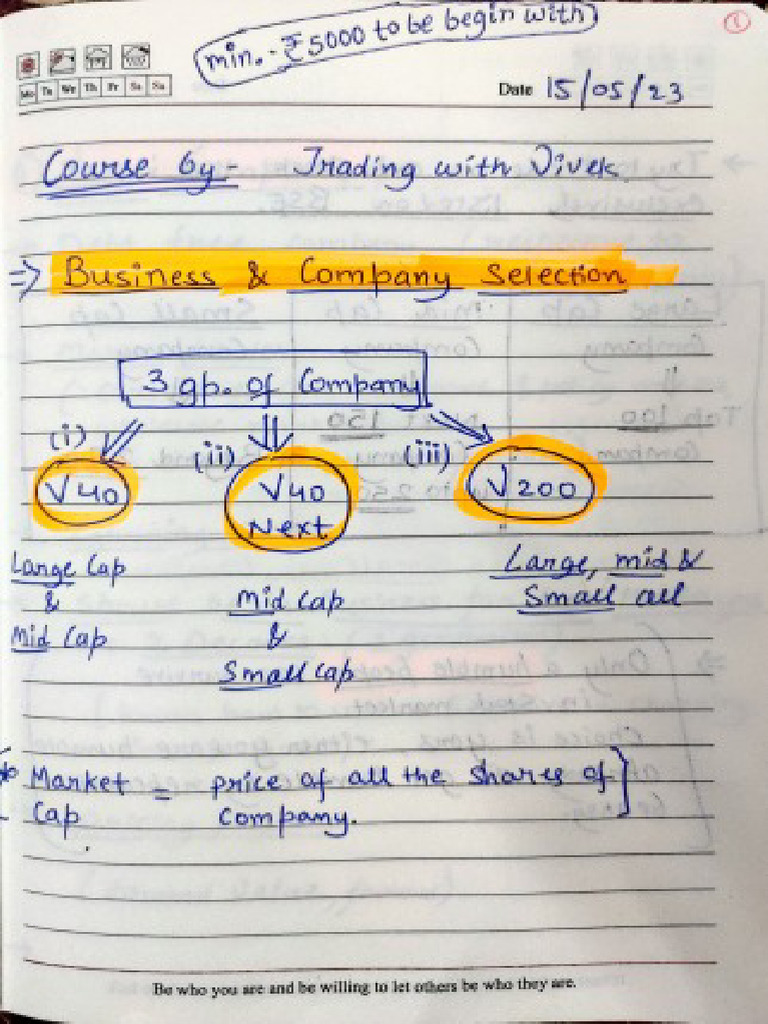 1
min. - ₹5000 to be begin with
Mo Tu We Th Fr Sa Su
Date 15/05/23
Course by:- Trading with Vivek.
⇒ Business & Company Selection
3 gp. of Company
(i) (ii) (iii)
V40 V40 Next V200
Large Cap & Mid Cap
Mid Cap & Small Cap
Large, mid & Small all
* Market Cap = price of all the shares of company.
Be who you are and be willing to let others be who they are.